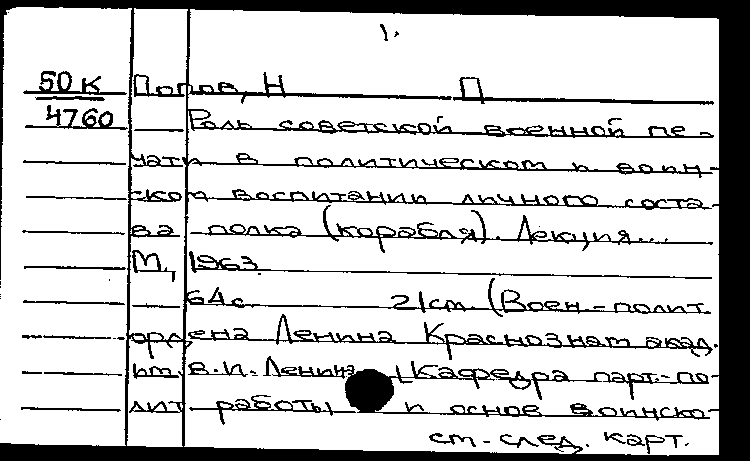 1.
50К Попов, Н П
4760 Роль советской военной пе-
чати в политическом и воин-
ском воспитании личного соста-
ва полка (корабля). Лекция...
М., 1963.
64 с. 21 см. (Воен.-полит.
ордена Ленина Краснознам акад.
им. В.И. Ленина. Кафедра парт.-по-
лит работы и основ воинско-
см. след. карт.